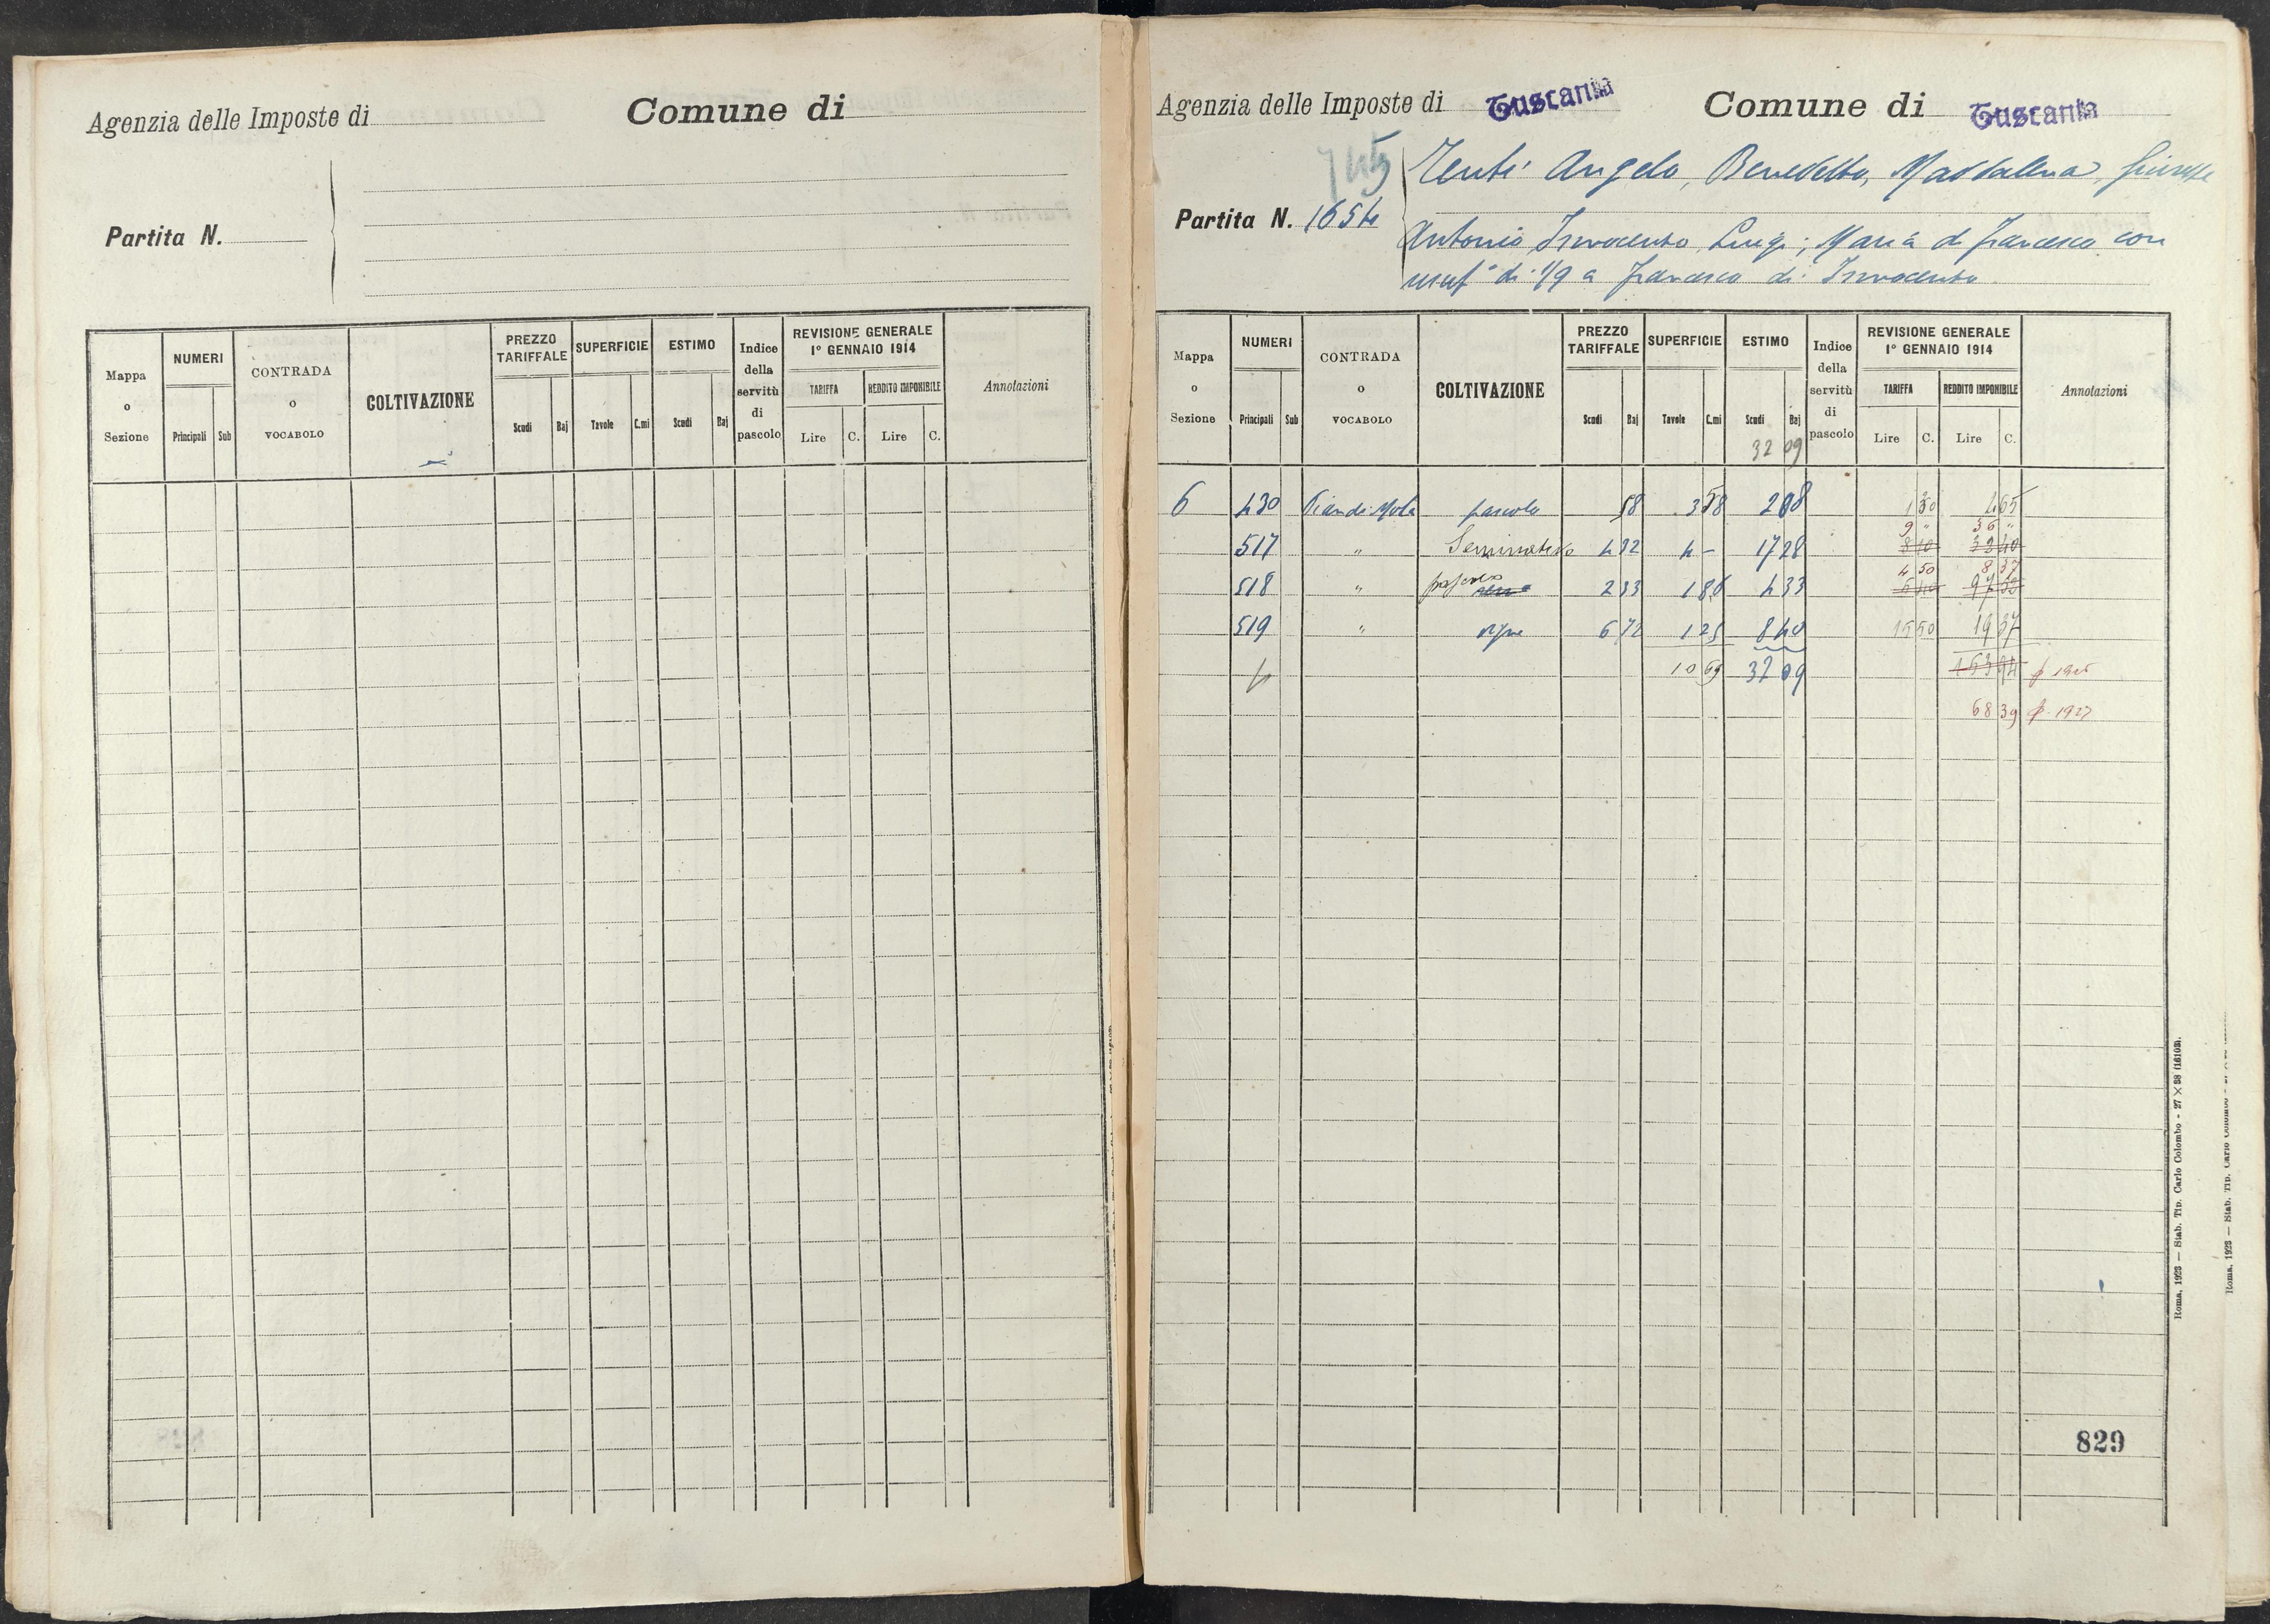 Agenzia delle Imposte di
Comune di
Partita N.
Mappa o Sezione
NUMERI
Principali Sub
CONTRADA o VOCABOLO
COLTIVAZIONE
PREZZO TARIFFALE
Scudi Baj
SUPERFICIE
Tavole C.mi
ESTIMO
Scudi Baj
Indice della servitù di pascolo
REVISIONE GENERALE
1º GENNAIO 1914
TARIFFA
Lire C.
REDDITO IMPONIBILE
Lire C.
Annotazioni
Agenzia delle Imposte di Tuscania
Comune di Tuscania
745
Angelo, Benedetto, Maddalena, Giuseppe
Partita N. 1654
Antonio Innocenzo Luigi; Maria di Francesco con
usufº di 1/9 a Francesco di Innocenzo
Mappa o Sezione
NUMERI
Principali Sub
CONTRADA o VOCABOLO
COLTIVAZIONE
PREZZO TARIFFALE
Scudi Baj
SUPERFICIE
Tavole C.mi
ESTIMO
Scudi Baj
32 09
Indice della servitù di pascolo
REVISIONE GENERALE
1º GENNAIO 1914
TARIFFA
Lire C.
REDDITO IMPONIBILE
Lire C.
Annotazioni
6 430 Pian di Mola pascolo 58 3 58 2 08 1 30 4 65
9 " 36 "
517 " Seminativo 4 32 4 - 17 28 8 10 32 40
4 50 8 37
518 " pascolo 2 33 1 86 4 33
519 " vigna 6 72 1 25 8 40 15 50 19 37
10 69 32 09
68 39 1927
829
Roma, 1923 — Stab. Tip. Carlo Colombo - 27 × 38 (16103).
Roma, 1923 — Stab. Tip. Carlo Colombo